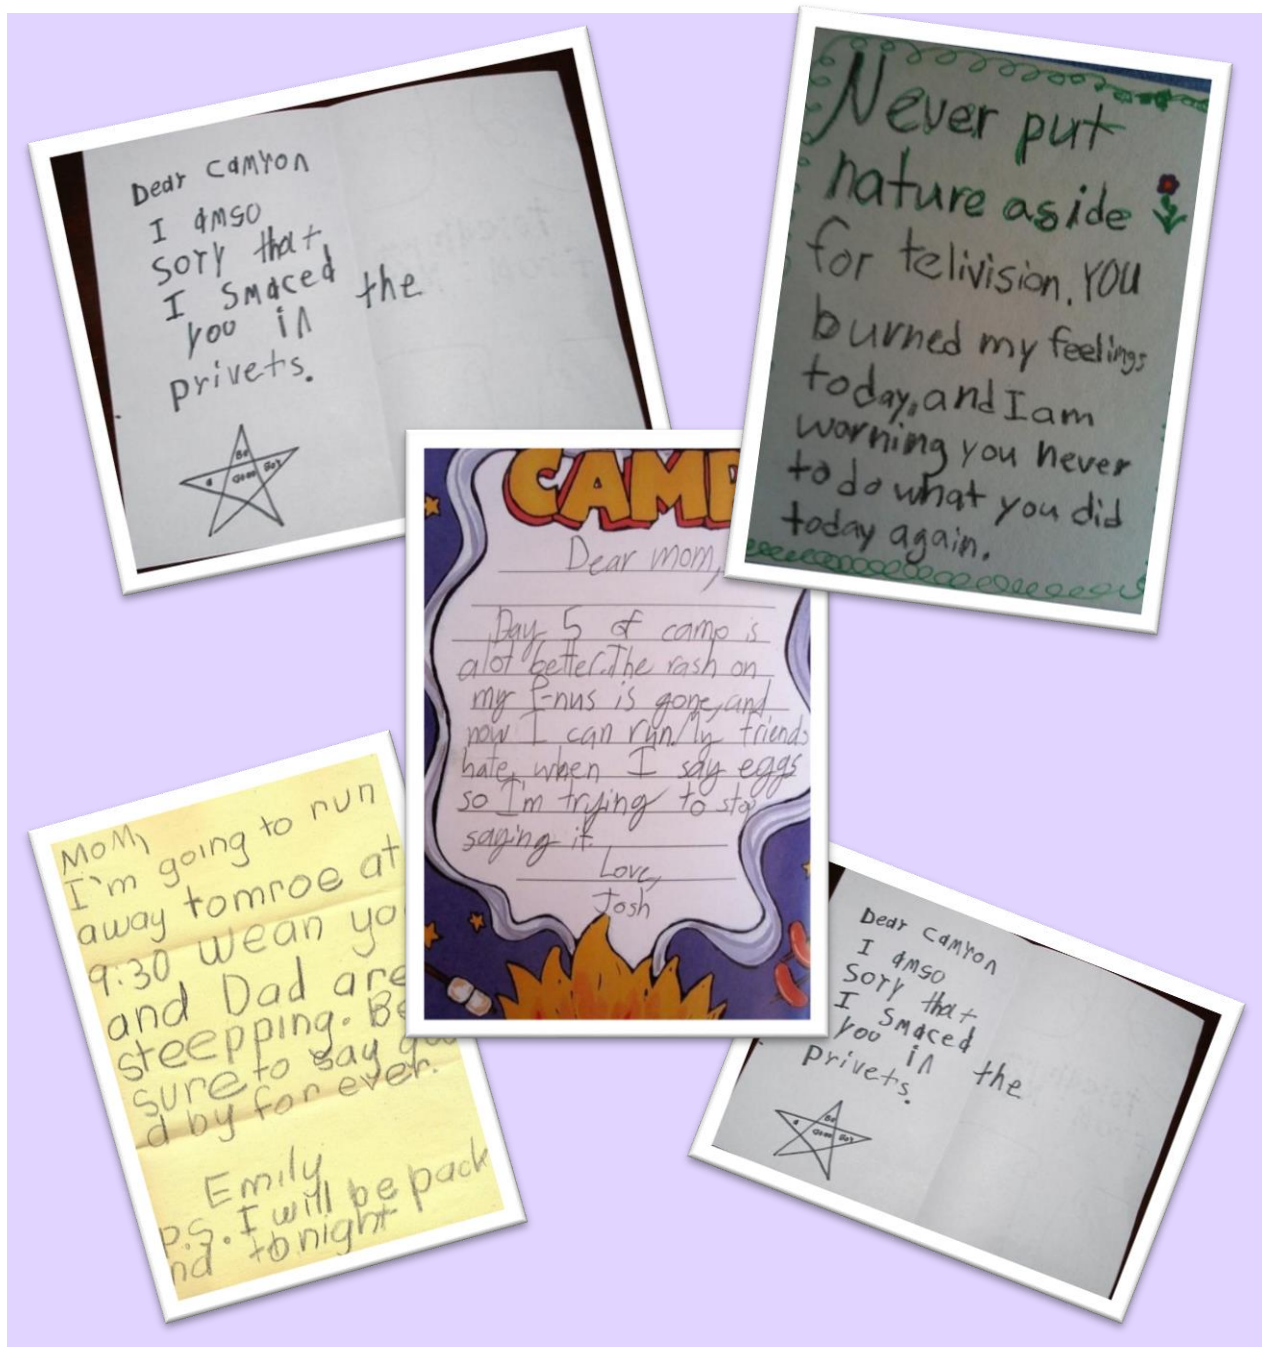 Dear Camyon
I amso
sory that
I Smaced
you in the
privets.
Be
a Good Boy
Never put
nature aside
for telivision. YOU
burned my feelings
today, and I am
worning you never
to do what you did
today again.
CAMP
Dear mom,
Day 5 of camp is
alot better. The rash on
my P-nus is gone, and
now I can run. My friends
hate when I say eggs
so I'm trying to stop
saying it.
Love,
Josh
MOM,
I'm going to run
away tomroe at
9:30 wean yo
and Dad are
steepping. Be
sure to say
d by for ever.
Emily
p.s. I will be pack
nd tonight
Dear Camyon
I amso
sory that
I Smaced
you in the
privets.
Be
a Good Boy